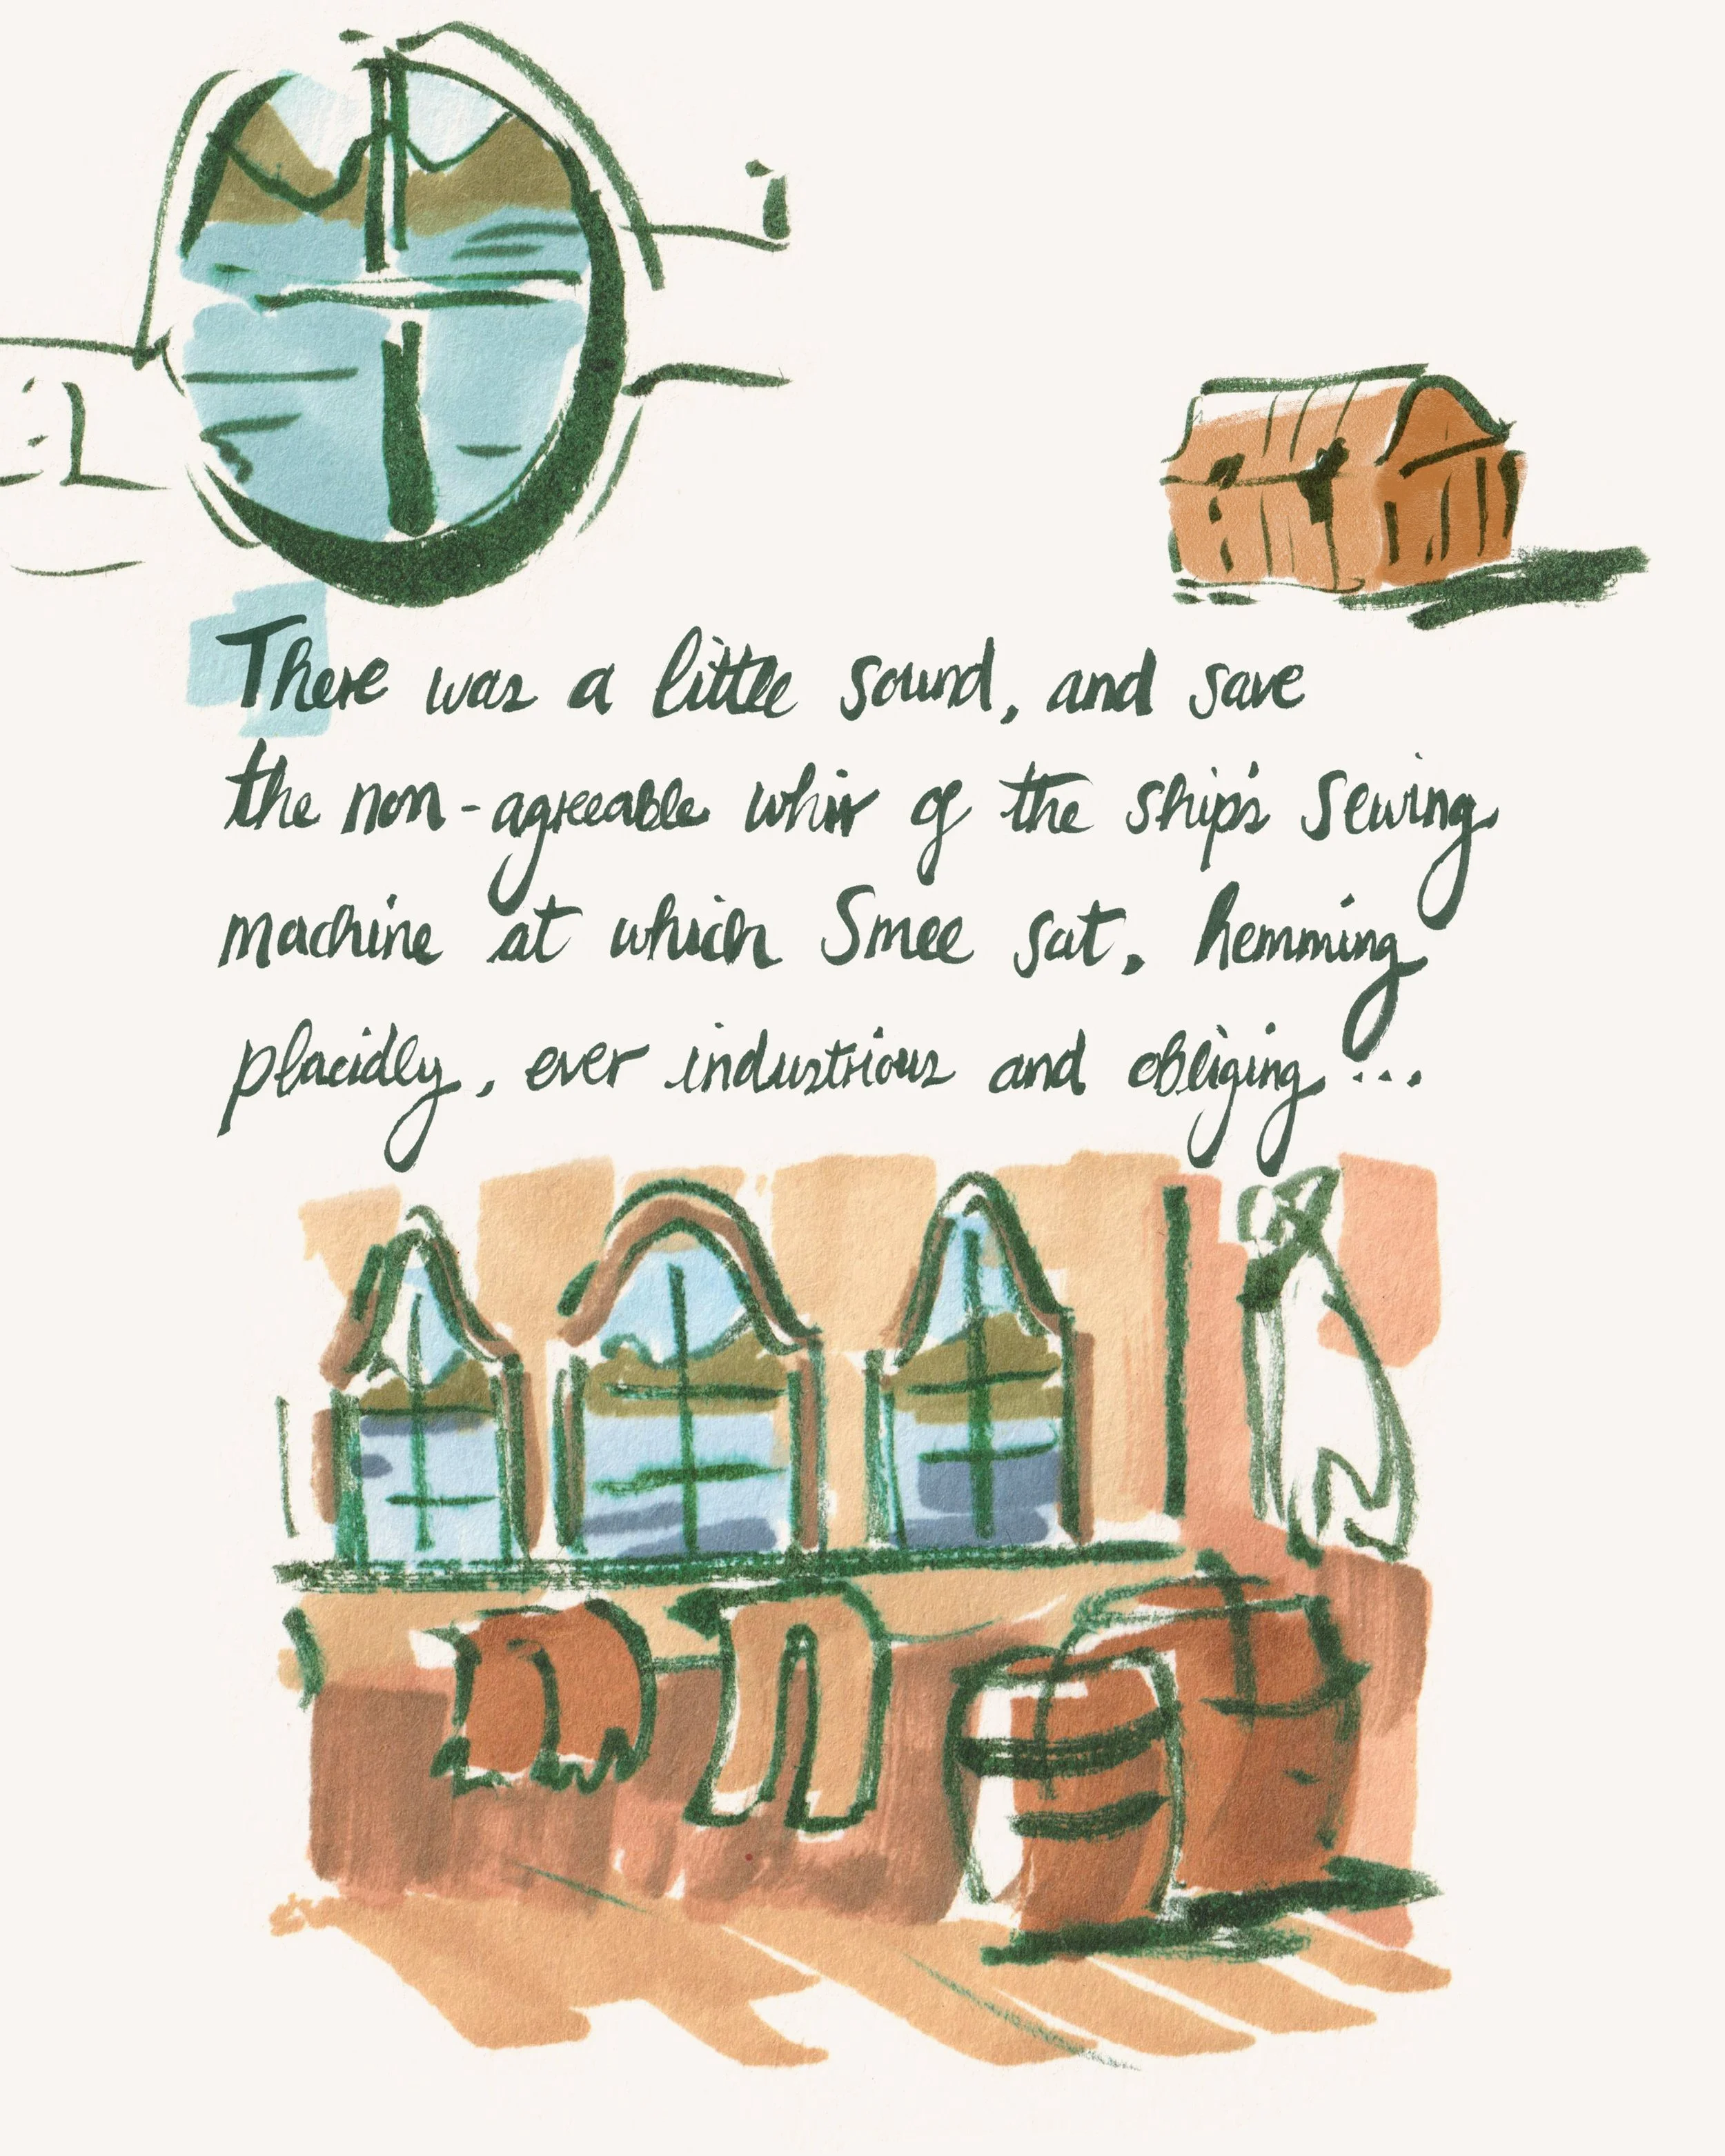 There was a little sound, and save
the non-agreeable whir of the ship's sewing
machine at which Smee sat, hemming
placidly, ever industrious and obliging...